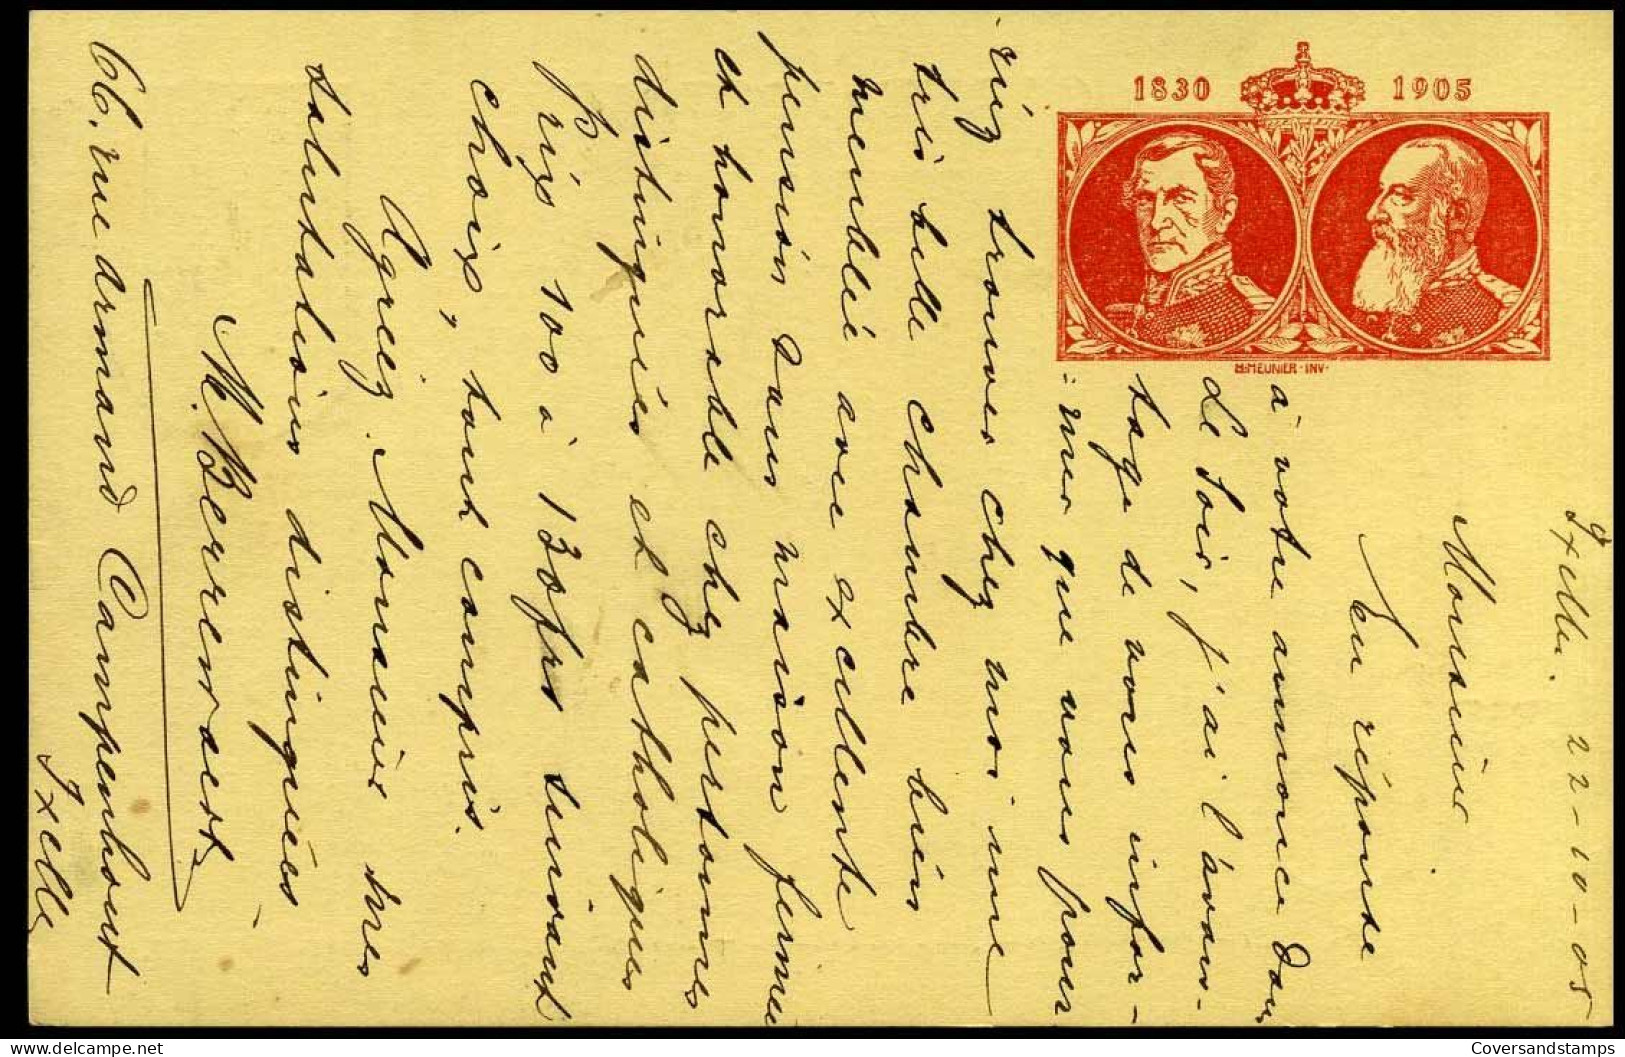 1830 1905
H·MEUNIER·INV·
Ixelles. 22-10-05
Monsieur
En réponse
à votre annonce dans
Le Soir, j'ai l'avan-
tage de vous infor-
mer que vous pour
riez trouver chez moi une
très belle chambre bien
meublé avec excellente
pension dans maison fermée
et honorable chez personnes
distinguées et catholiques
Prix 100 à 130 frs suivant
choix, tout compris.
Agréez Monsieur mes
salutations distinguées
66, rue Armand Campenhout
Ixelles
Coversandstamps